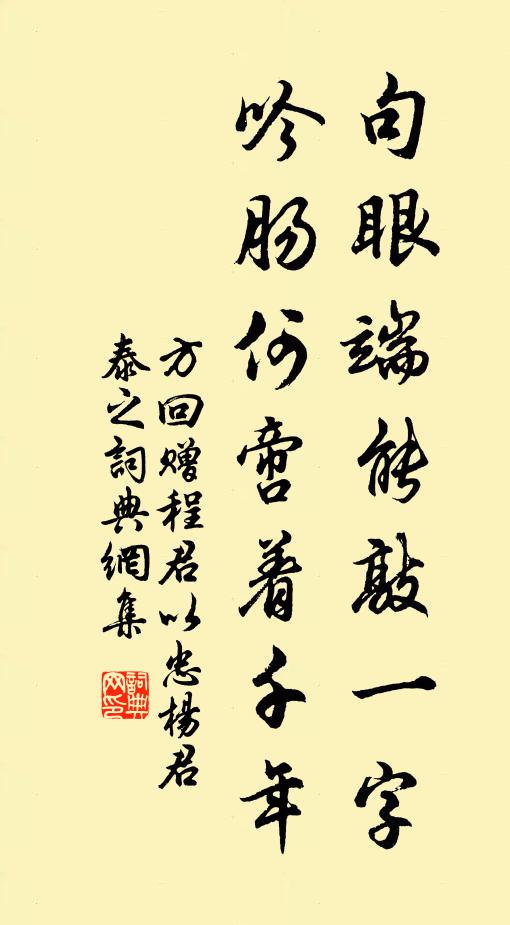 句眼端能敲一字
吟肠何啻着千年
方回赠程君以忠杨君
泰之詞典網集
詞典网印